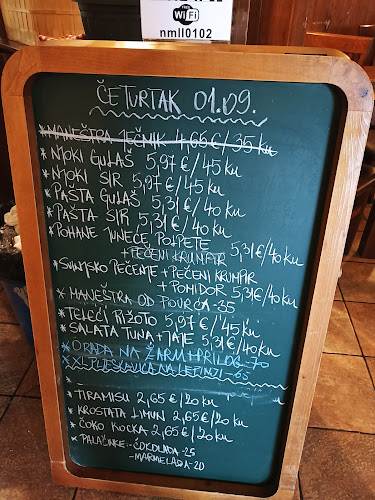 WiFi
nmll0102
ČETVRTAK 01.09.
* MANEŠTRA JEČMIK 4,65€/35 ku
* NJOKI GULAŠ 5,97€/45 ku
* NJOKI SIR 5,97€/45 ku
* PAŠTA GULAŠ 5,31€/40 ku
* PAŠTA SIR 5,31€/40 ku
* POHANE JUNEĆE POLPETE
+ PEČENI KRUMPIR 5,31€/40 ku
* SVINJSKO PEČENJE + PEČENI KRUMPIR
+ POMIDOR 5,31€/40 ku
* MANEŠTRA OD -35
* TELEĆI RIŽOTO 5,97€/45 ku
* SALATA TUNA + JAJE 5,31€/40 ku
* ORADA NA ŽARU + PRILOG -70
* XL PLJESKAVICA NA LEPINJI -65
* TIRAMISU 2,65€/20 ku
* KROSTATA LIMUN 2,65€/20 ku
* ČOKO KOCKA 2,65€/20 ku
* PALAČINKE - ČOKOLADA -25
- MARMELADA -20